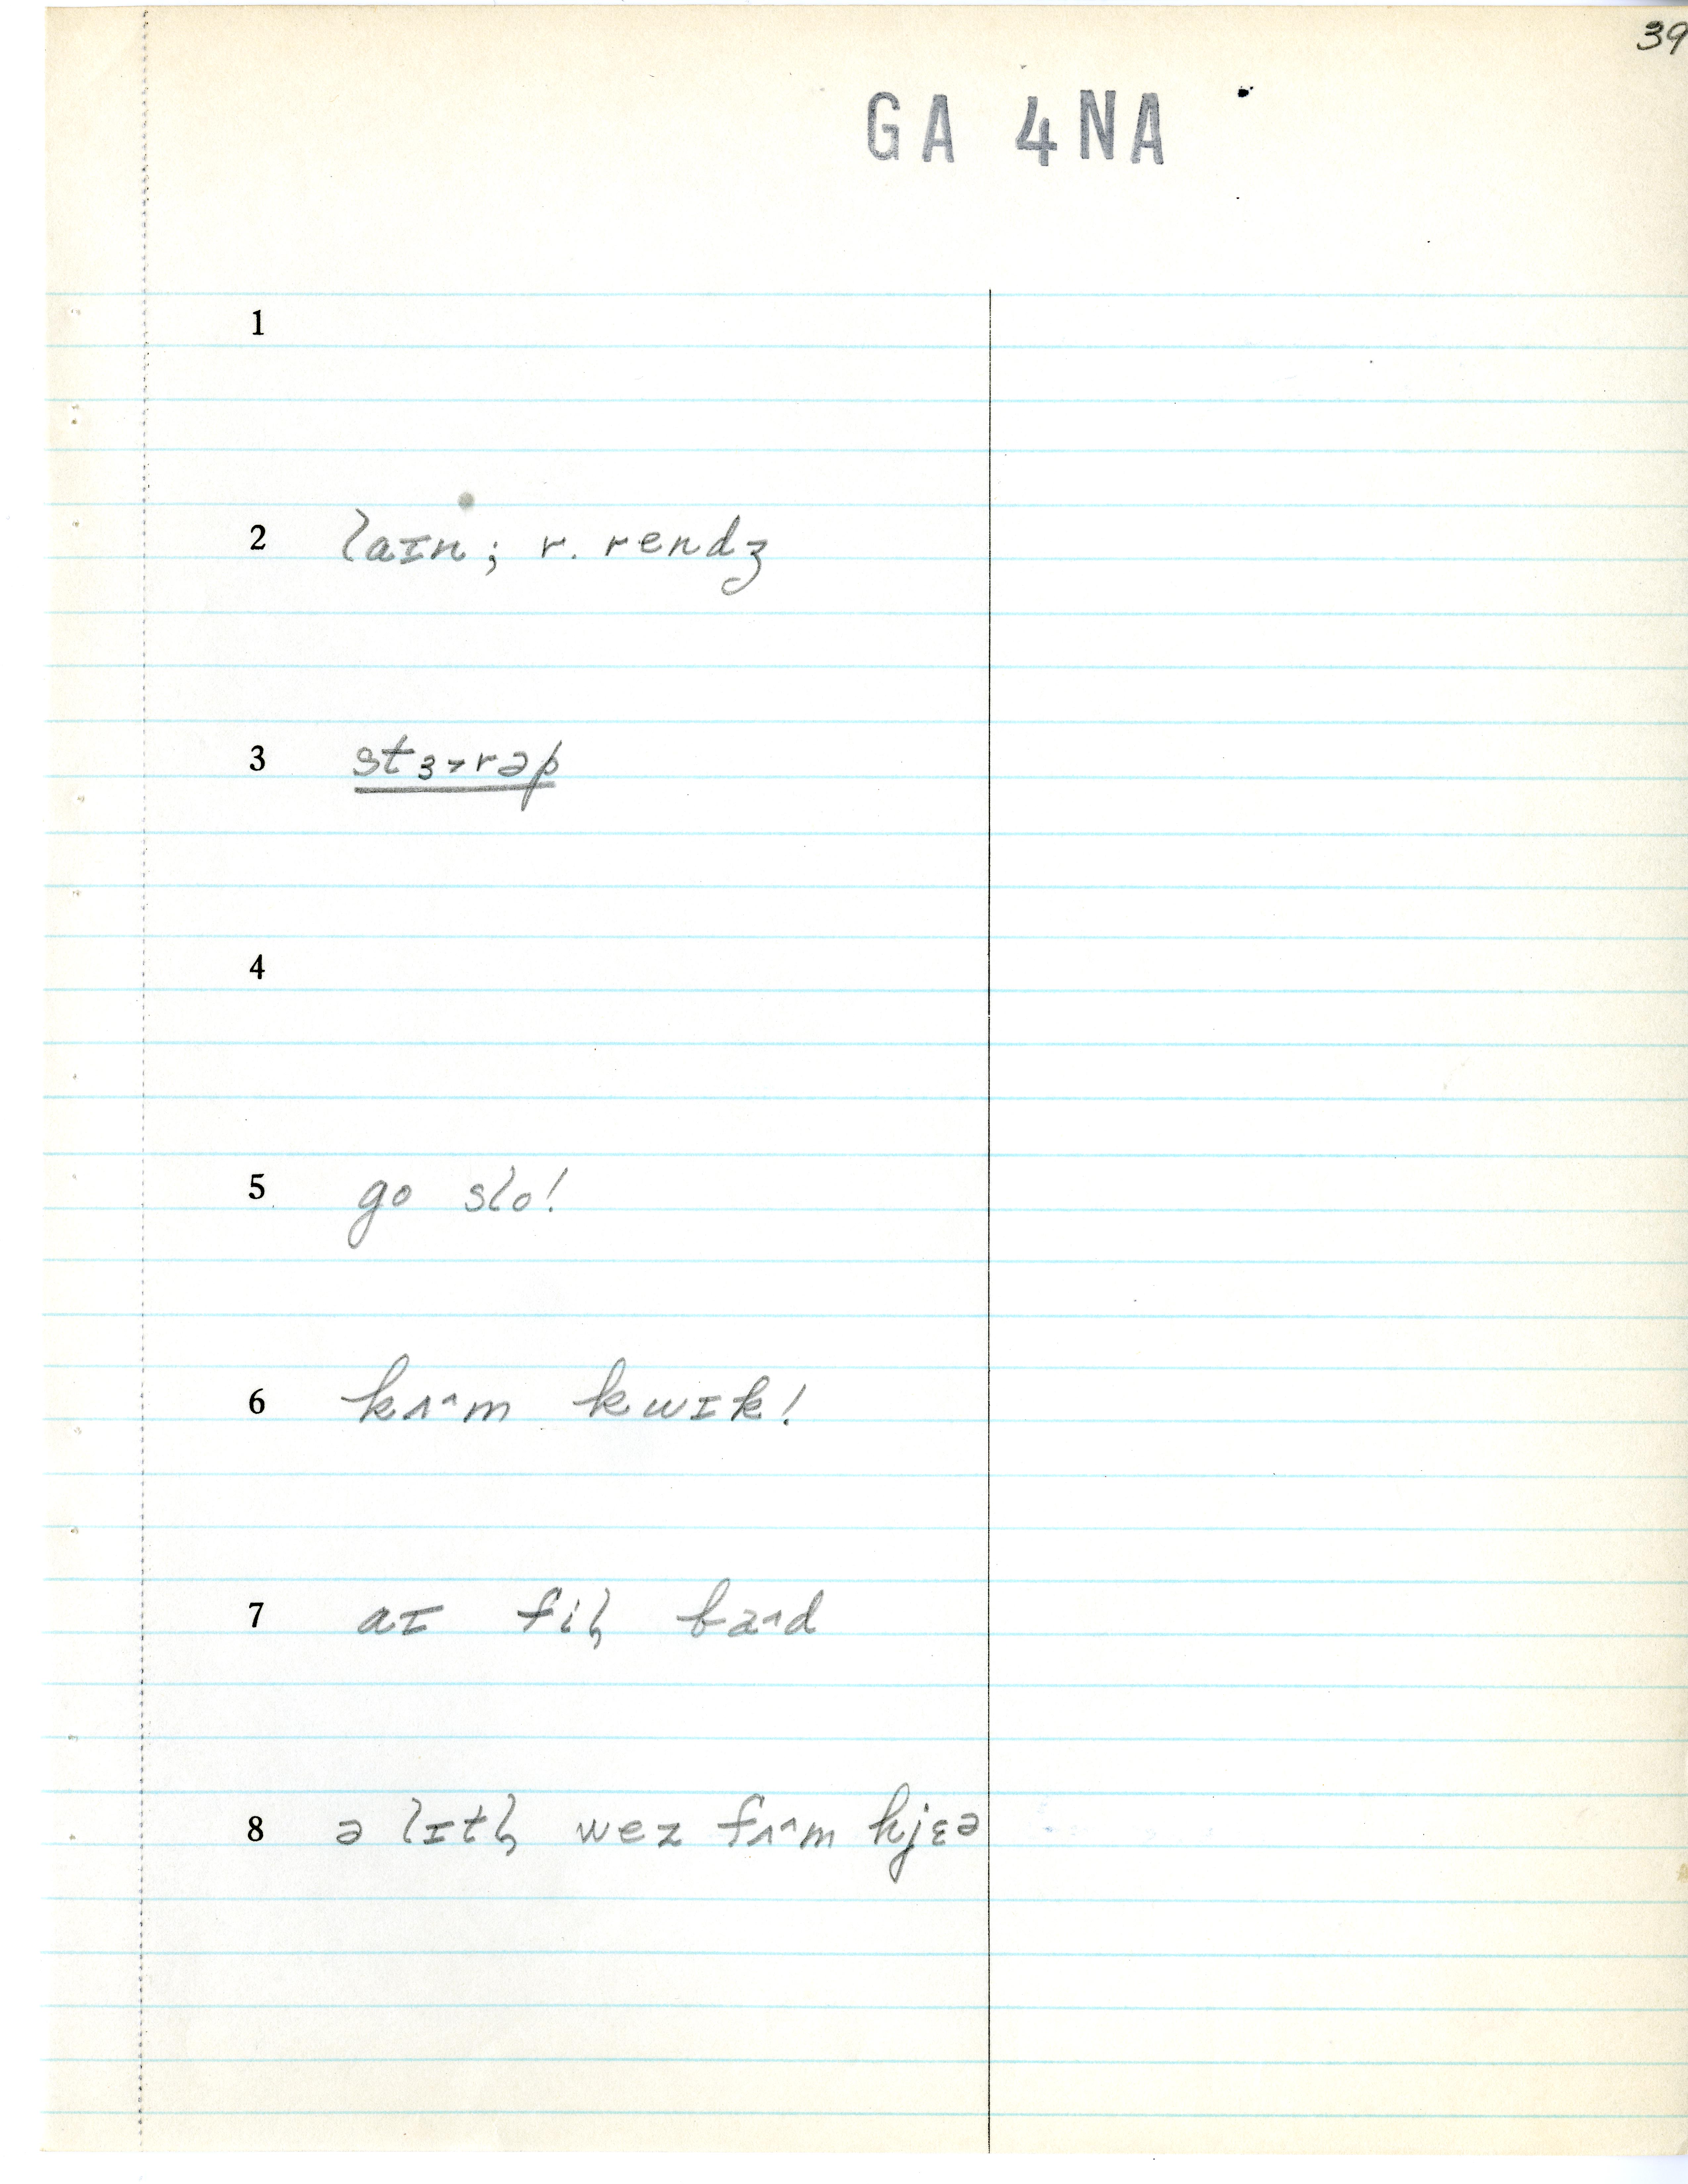 39
GA 4NA
1
2 laɪn; r. rendʒ
3 stɜ˞rəp
4
5 go slo!
6 kʌ^m kwɪk!
7 aɪ fiɫ ba^d
8 ə lɪtɫ wez frʌ^m hjɛə